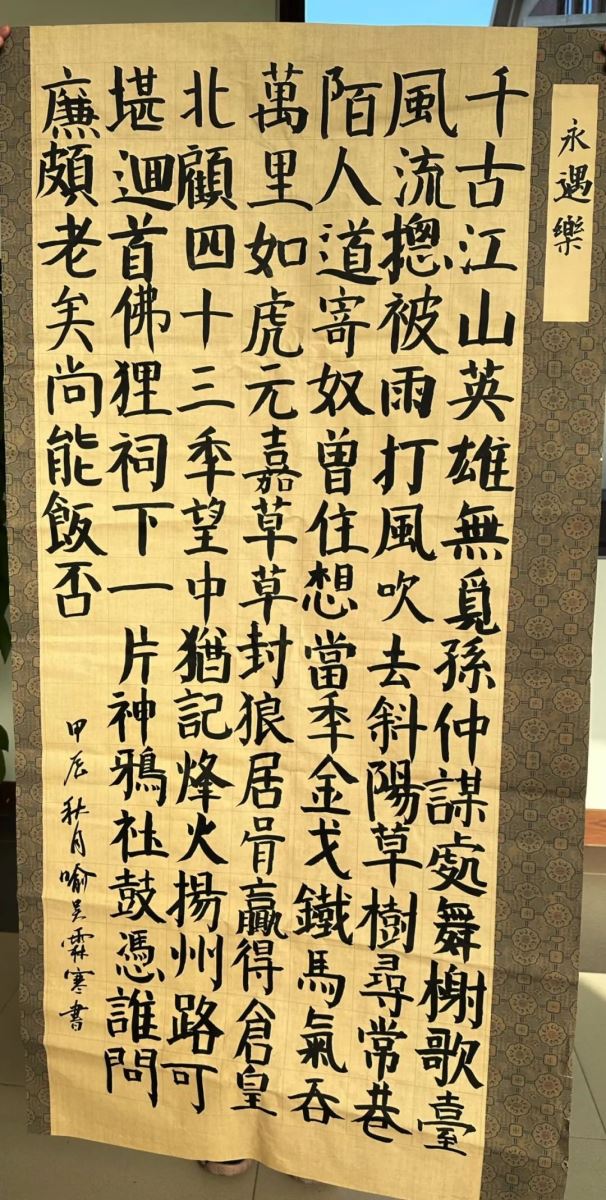 永遇樂
千古江山英雄無覓孫仲謀處舞榭歌臺
風流摠被雨打風吹去斜陽草樹尋常巷
陌人道寄奴曾住想當秊金戈鐵馬氣吞
萬里如虎元嘉草草封狼居胥贏得倉皇
北顧四十三秊望中猶記烽火揚州路可
堪逥首佛狸祠下一片神鴉社鼓憑誰問
廉頗老矣尚能飯否
甲辰秋月喻吴霖寒書